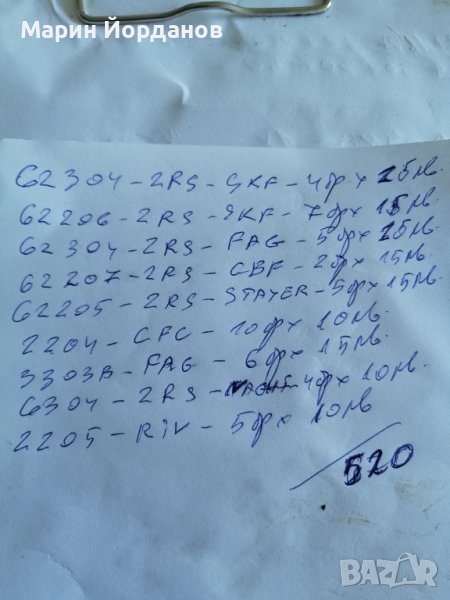 Марин Йорданов
62304-2RS-SKF-4бр х 25лв.
62206-2RS-SKF-7бр х 15лв.
62304-2RS-FAG-5бр х 25лв.
62207-2RS-CBF-2бр х 15лв.
62205-2RS-STAYER-5бр х 15лв.
2204-CFC-10бр х 10лв.
3303B-FAG-6бр х 15лв.
6304-2RS-4бр х 10лв.
2205-RIV-5бр х 10лв
520
BAZAR